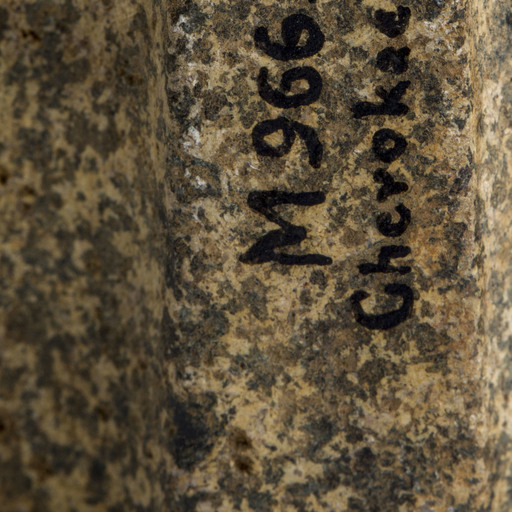 M 966
Cherokee